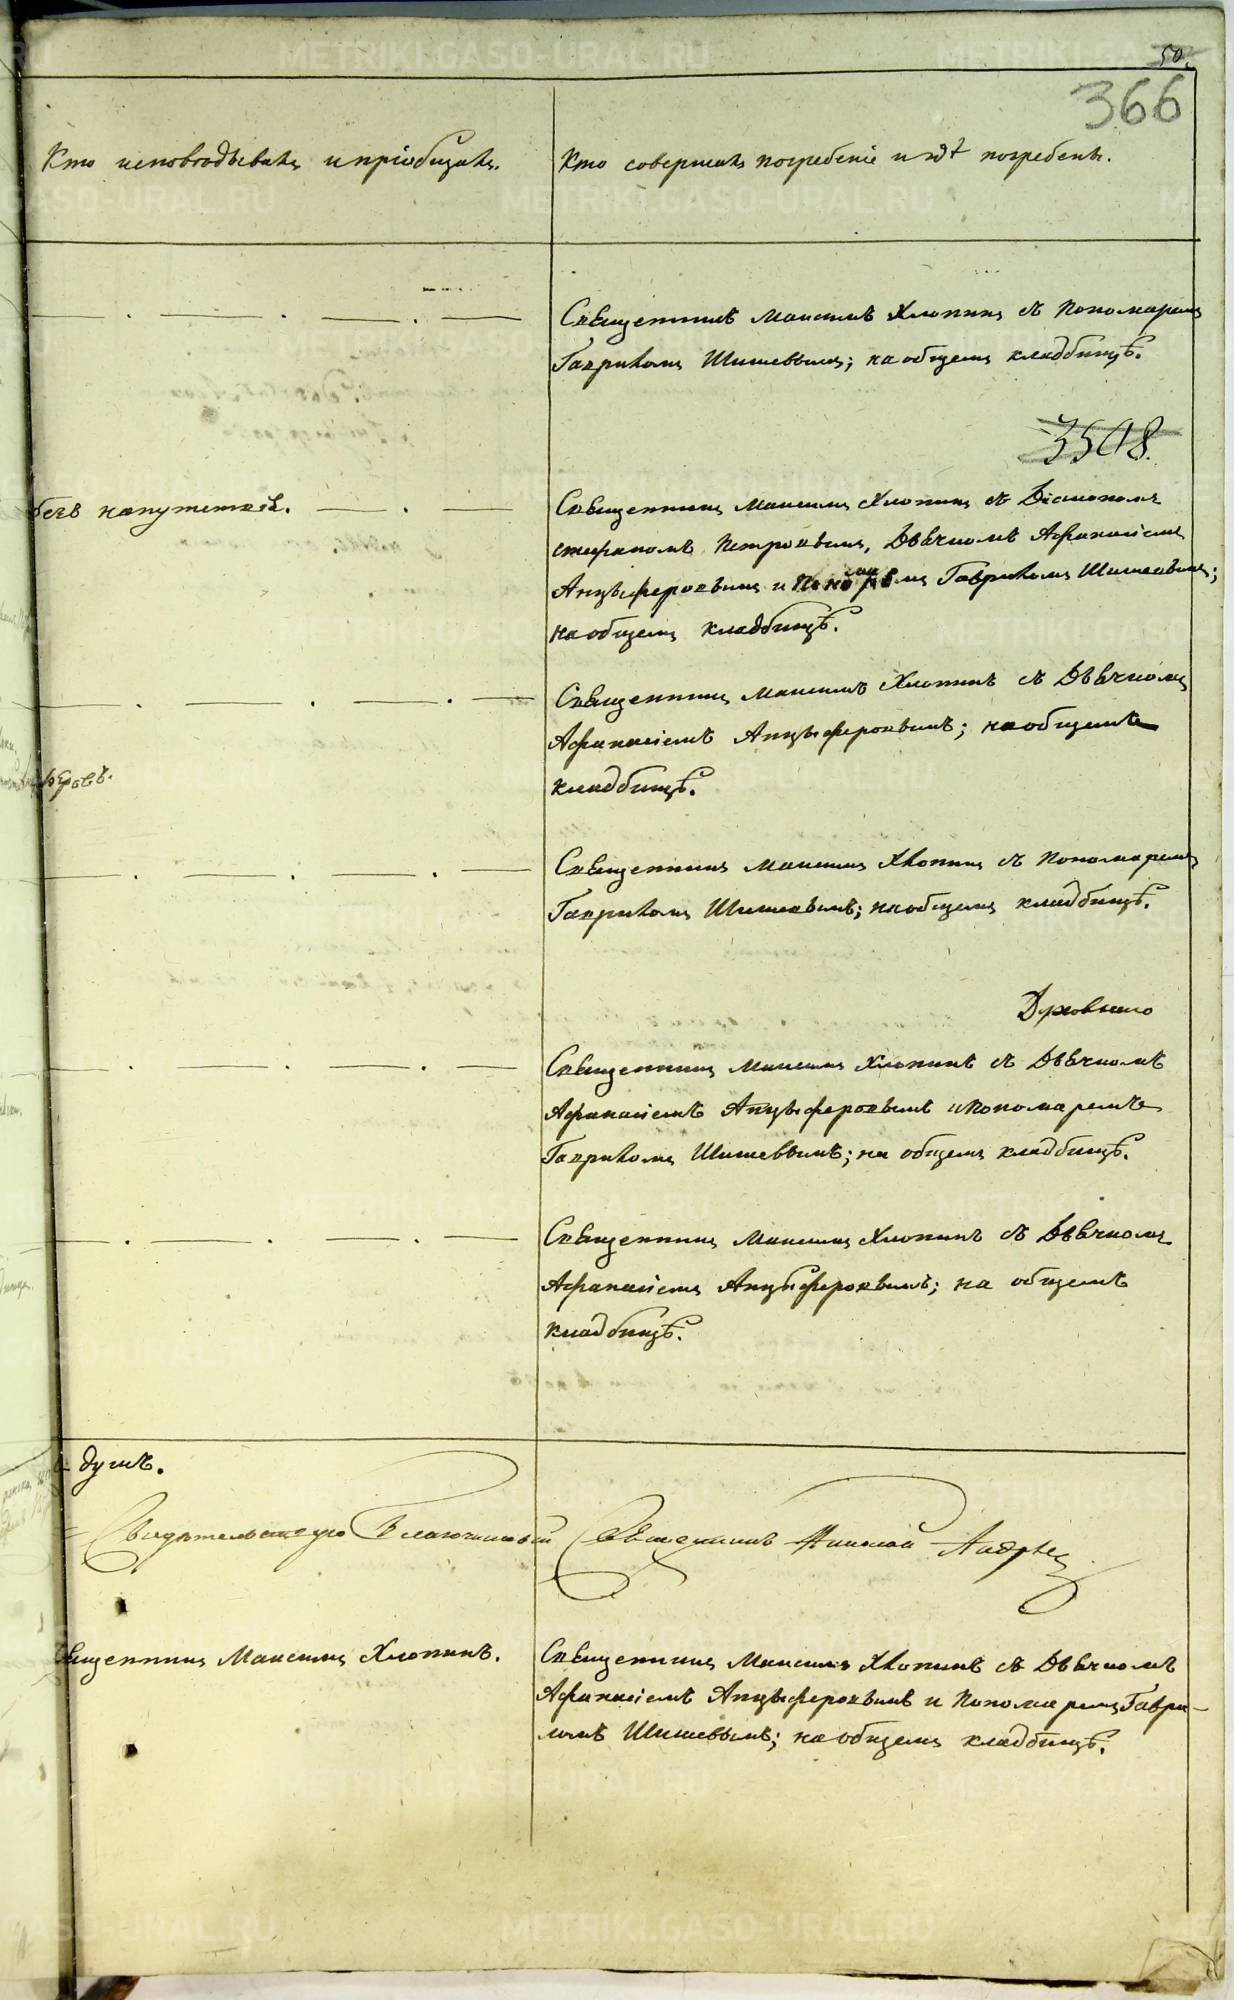 50.
366
Кто исповѣдывалъ и пріобщалъ.
Кто совершалъ погребеніе и гдѣ погребены.
Священникъ Максимъ Хлопинъ съ Пономаремъ
Гавриломъ Шишевымъ; на общемъ кладбищѣ.
3508.
безъ напутствія.
Священникъ Максимъ Хлопинъ съ Діакономъ
Стефаномъ Петровымъ, Дьячкомъ Афанасіемъ
Анцыферовымъ и Пономаремъ Гавриломъ Шишевымъ;
на общемъ кладбищѣ.
Священникъ Максимъ Хлопинъ съ Дьячкомъ
Афанасіемъ Анцыферовымъ; на общемъ
кладбищѣ.
Священникъ Максимъ Хлопинъ съ Пономаремъ
Гавриломъ Шишевымъ; на общемъ кладбищѣ.
Духовнаго
Священникъ Максимъ Хлопинъ съ Дьячкомъ
Афанасіемъ Анцыферовымъ и Пономаремъ
Гавриломъ Шишевымъ; на общемъ кладбищѣ.
Священникъ Максимъ Хлопинъ съ Дьячкомъ
Афанасіемъ Анцыферовымъ; на общемъ
кладбищѣ.
душъ.
Свидѣтельствую Благочинный Священникъ
Священникъ Максимъ Хлопинъ.
Священникъ Максимъ Хлопинъ съ Дьячкомъ
Афанасіемъ Анцыферовымъ и Пономаремъ Гаври-
ломъ Шишевымъ; на общемъ кладбищѣ.
METRIKI.GASO-URAL.RU